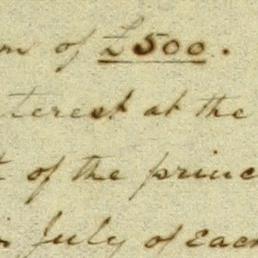 of £500.
interest at the
of the princ
July of Each